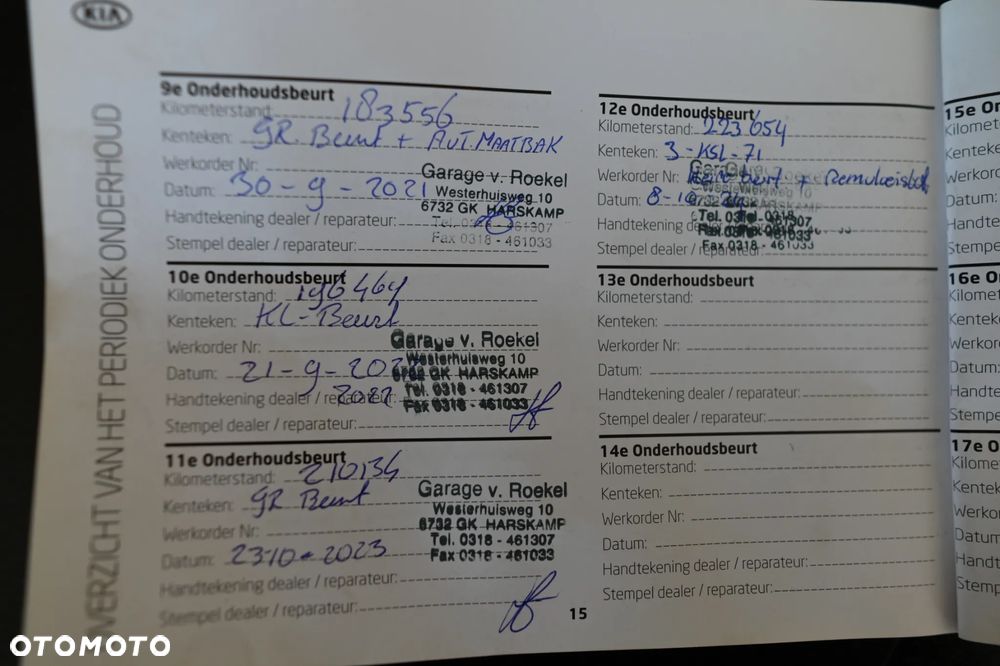 KIA
VERZICHT VAN HET PERIODIEK ONDERHOUD
9e Onderhoudsbeurt
Kilometerstand: 183556
Kenteken: GR. Beurt + AUT. MAATBAK
Werkorder Nr:
Datum: 30-9-2021
Handtekening dealer / reparateur:
Stempel dealer / reparateur:
Garage v. Roekel
Westerhuisweg 10
6732 GK HARSKAMP
Tel. 0318 - 461307
Fax 0318 - 461033
10e Onderhoudsbeurt
Kilometerstand: 196464
Kenteken: KL-Beurt
Werkorder Nr:
Datum: 21-9-202
2022
Handtekening dealer / reparateur:
Stempel dealer / reparateur:
Garage v. Roekel
Westerhuisweg 10
6732 GK HARSKAMP
Tel. 0318 - 461307
Fax 0318 - 461033
11e Onderhoudsbeurt
Kilometerstand: 210134
Kenteken: GR Beurt
Werkorder Nr:
Datum: 23-10-2023
Handtekening dealer / reparateur:
Stempel dealer / reparateur:
Garage v. Roekel
Westerhuisweg 10
6732 GK HARSKAMP
Tel. 0318 - 461307
Fax 0318 - 461033
12e Onderhoudsbeurt
Kilometerstand: 223654
Kenteken: 3-KSL-71
Werkorder Nr: beurt +
Datum: 8-10-24
Handtekening
Stempel dealer / reparateur:
6732 GK HARSKAMP
Tel. 0318
461307
Fax 0318 - 461033
13e Onderhoudsbeurt
Kilometerstand:
Kenteken:
Werkorder Nr:
Datum:
Handtekening dealer / reparateur:
Stempel dealer / reparateur:
14e Onderhoudsbeurt
Kilometerstand:
Kenteken:
Werkorder Nr:
Datum:
Handtekening dealer / reparateur:
Stempel dealer / reparateur:
15
15e On
Kilomet
Kenteke
Werkor
Datum:
Handte
Stempe
16e O
Kilomet
Kenteke
Werko
Datum
Handt
Stemp
17e O
Kilome
Kentek
Werko
Datum
Handt
Stemp
OTOMOTO